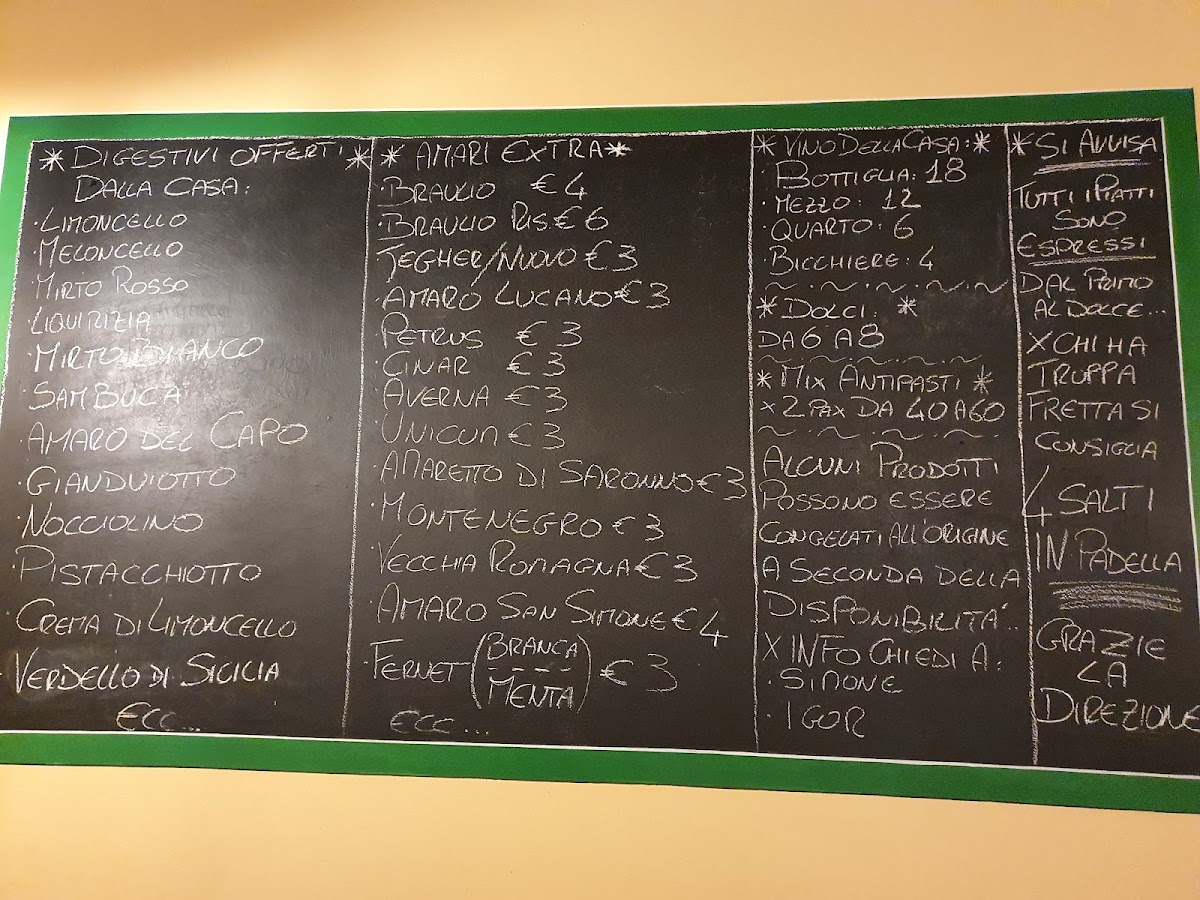 * DIGESTIVI OFFERTI *
DALLA CASA:
· LIMONCELLO
· MELONCELLO
· MIRTO ROSSO
· LIQUIRIZIA
· MIRTO BIANCO
· SAMBUCA
· AMARO DEL CAPO
· GIANDUIOTTO
· NOCCIOLINO
· PISTACCHIOTTO
· CREMA DI LIMONCELLO
· VERDELLO DI SICILIA
ECC...
* AMARI EXTRA *
· BRAULIO € 4
· BRAULIO RIS. € 6
· JEGHER/NUOVO € 3
· AMARO LUCANO € 3
· PETRUS € 3
· CINAR € 3
· AVERNA € 3
· UNICUM € 3
· AMARETTO DI SARONNO € 3
· MONTENEGRO € 3
· VECCHIA ROMAGNA € 3
· AMARO SAN SIMONE € 4
· FERNET (BRANCA
MENTA) € 3
ECC...
* VINO DELLA CASA: *
· BOTTIGLIA: 18
· MEZZO: 12
· QUARTO: 6
· BICCHIERE: 4
* DOLCI: *
DA 6 A 8
* MIX ANTIPASTI *
x 2 PAX DA 40 A 60
ALCUNI PRODOTTI
POSSONO ESSERE
CONGELATI ALL'ORIGINE
A SECONDA DELLA
DISPONIBILITÀ...
X INFO CHIEDI A:
· SIMONE
· IGOR
* SI AVVISA
TUTTI I PIATTI
SONO
ESPRESSI
DAL PRIMO
AL DOLCE...
X CHI HA
TROPPA
FRETTA SI
CONSIGLIA
4 SALTI
IN PADELLA
GRAZIE
LA
DIREZIONE